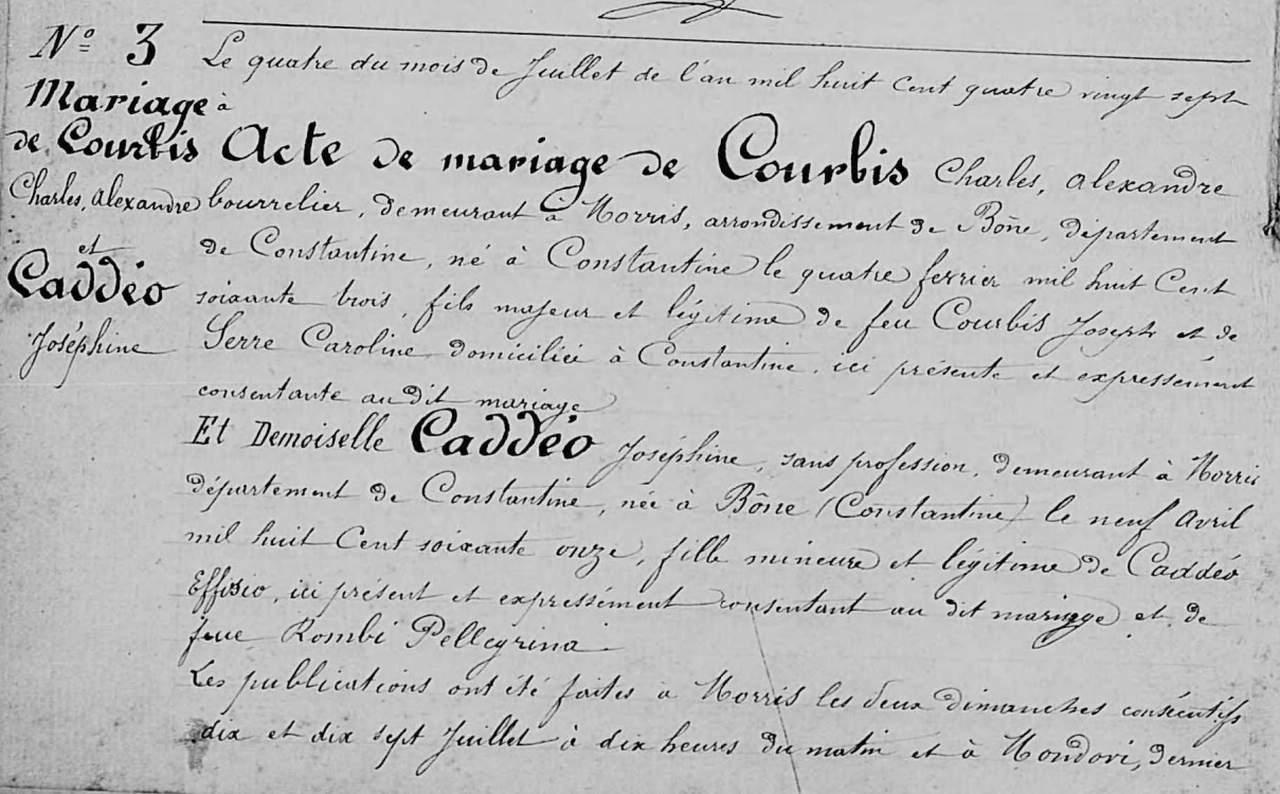 N° 3
Mariage à
de Courbis
Charles, Alexandre
et
Caddéo
Joséphine
Le quatre du mois de Juillet de l'an mil huit cent quatre vingt sept
Acte de mariage de Courbis Charles, Alexandre
bourrelier, demeurant à Morris, arrondissement de Bône, département
de Constantine, né à Constantine le quatre fevrier mil huit Cent
soixante trois, fils majeur et légitime de feu Courbis Joseph et de
Serre Caroline domiciliée à Constantine, ici présente et expressément
consentante au dit mariage
Et Demoiselle Caddéo Joséphine, sans profession, demeurant à Morris
département de Constantine, née à Bône (Constantine) le neuf Avril
mil huit Cent soixante onze, fille mineure et légitime de Caddéo
Effisio, ici présent et expressément consentant au dit mariage et de
feue Rombi Pellegrina.
Les publications ont été faites à Morris les deux dimanches consécutifs
dix et dix sept Juillet à dix heures du matin et à Mondovi, dernier